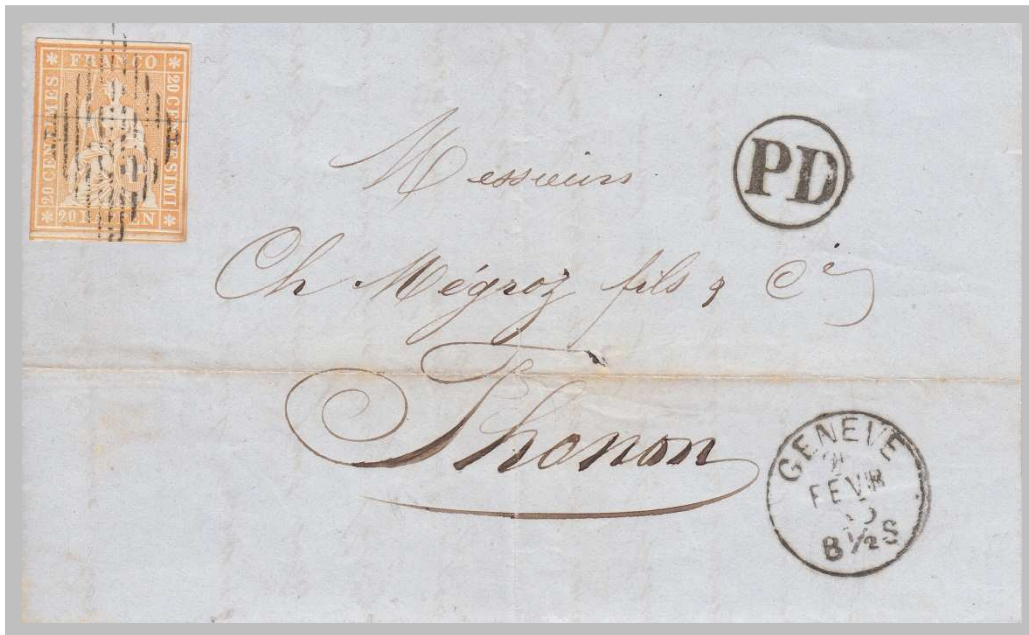 FRANCO
20 CENTIMES
20 CENTESIMI
20 RAPPEN
PD
Messieurs
Ch Mégroz fils & Cie
Thonon
GENEVE
FEVR
8 ½ S